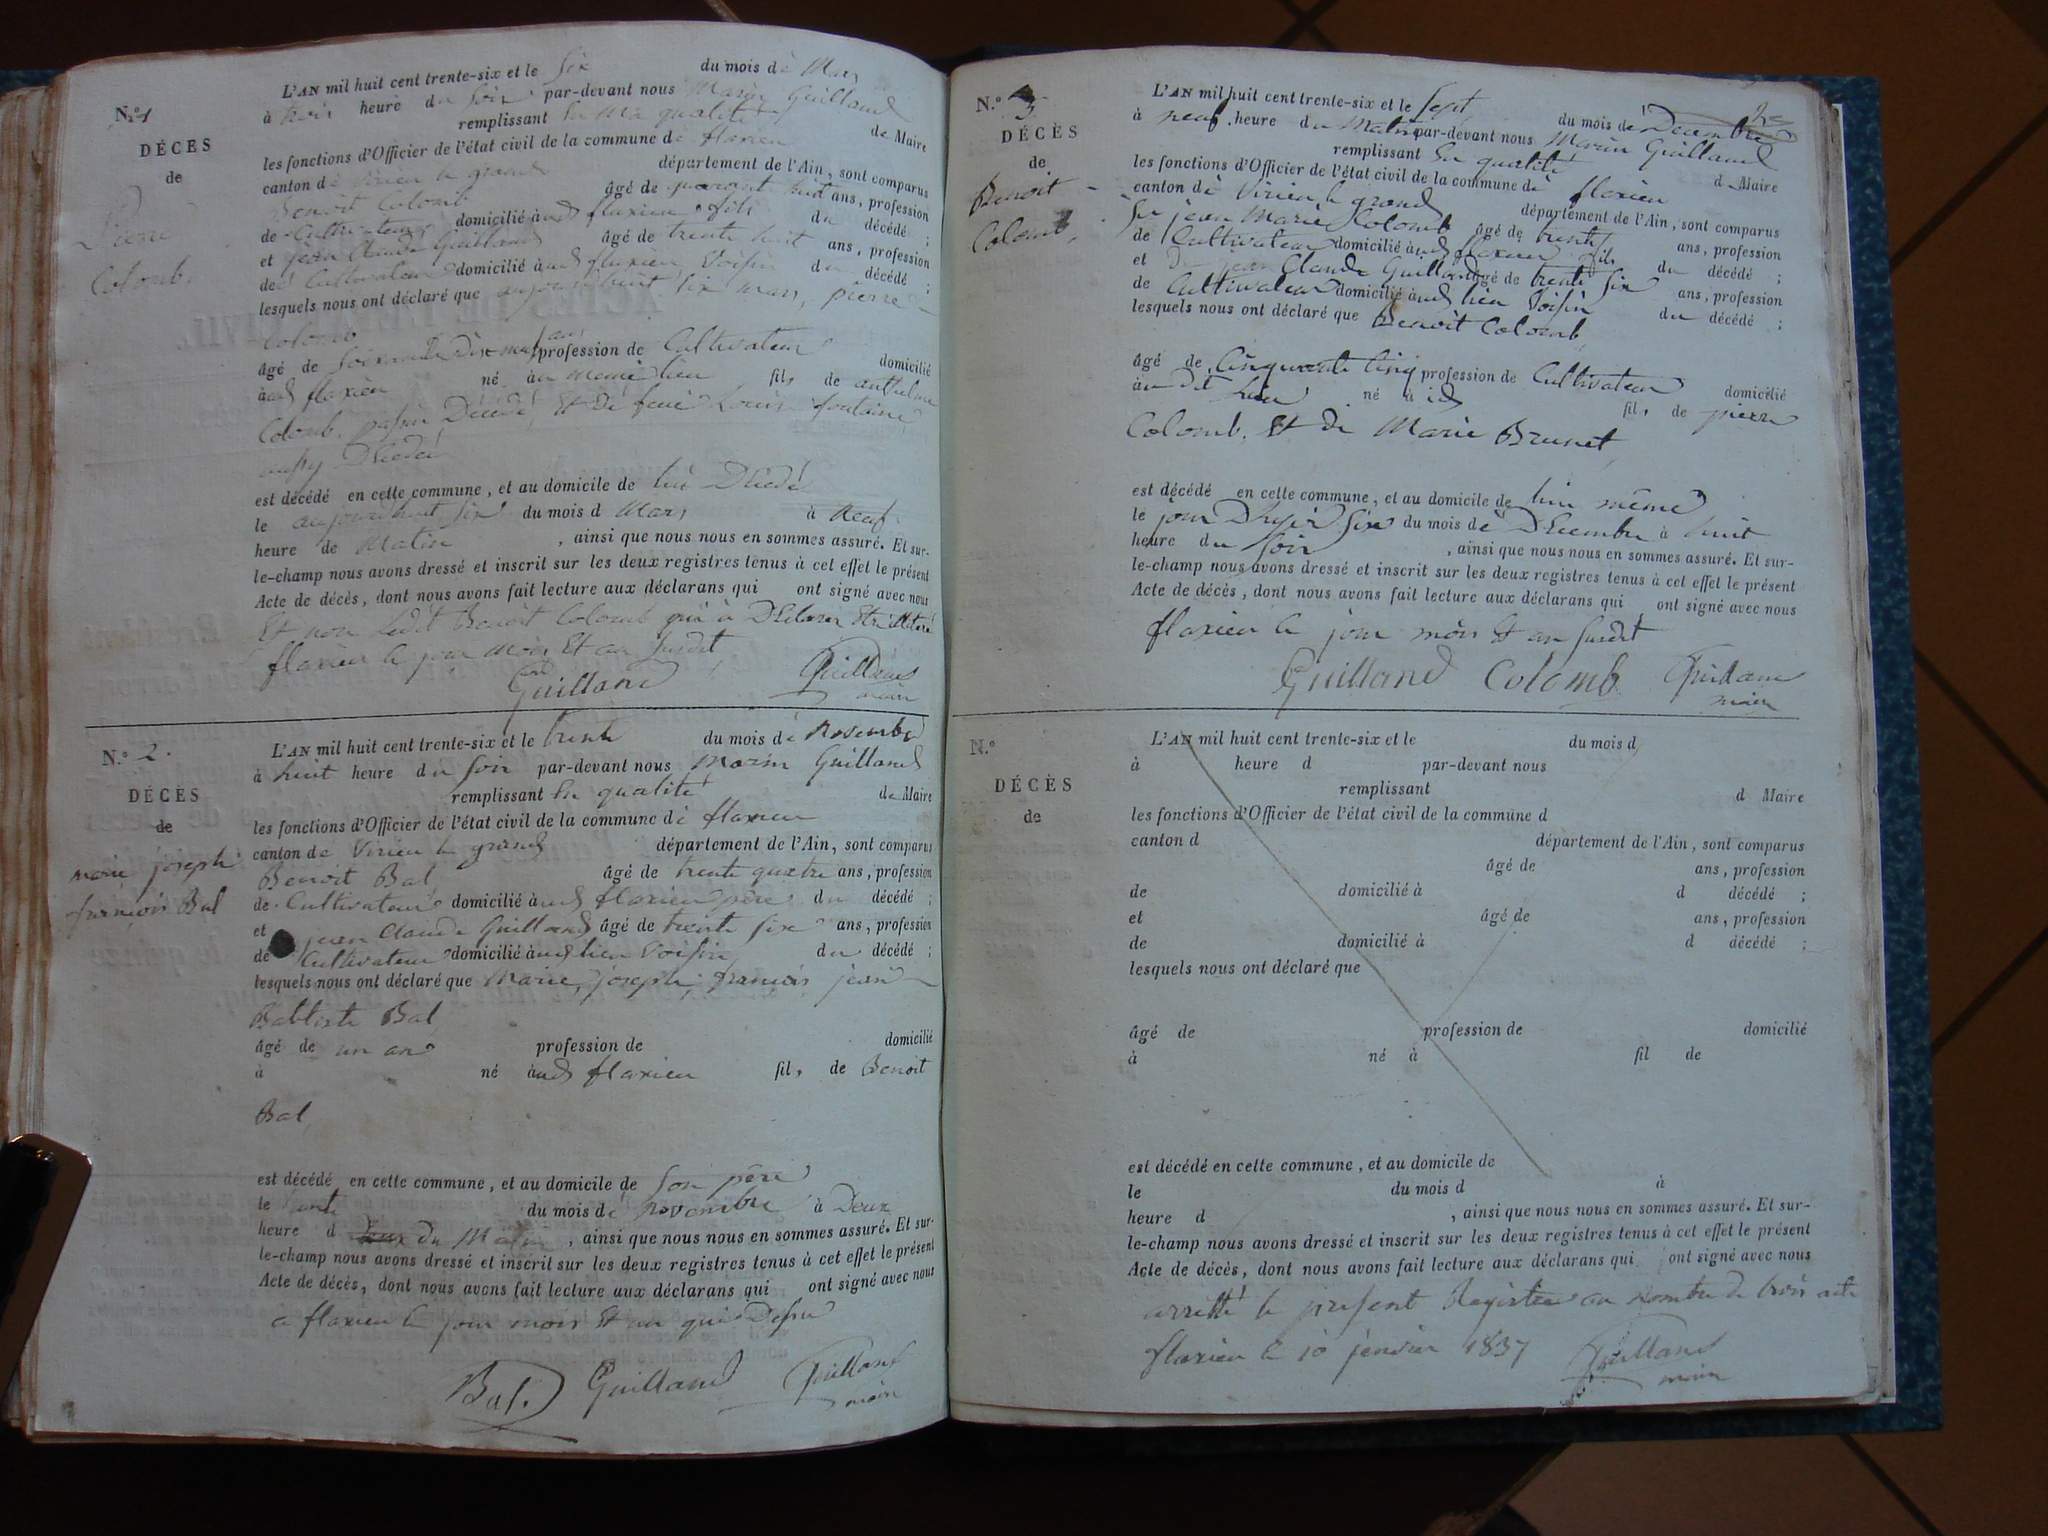 N.º 1
DÉCES
de
Pierre
Colomb,
L'AN mil huit cent trente-six et le Six du mois de Mars
à trois heure du Soir par-devant nous Marin Guilland
remplissant en Ma qualité de Maire
les fonctions d'Officier de l'état civil de la commune de flaxieu
canton de Virieu le grand département de l'Ain, sont comparus
Benoit Colomb âgé de quarante huit ans, profession
de Cultivateur domicilié aud flaxieu fils du décédé ;
et jean Claude Guilland âgé de trente huit ans, profession
de Cultivateur domicilié aud flaxieu Voisin du décédé ;
lesquels nous ont déclaré que aujourdhuit Six mars, pierre
Colomb
âgé de Soixante Dix neuf ans profession de Cultivateur domicilié
aud flaxieu né au meme lieu fils de anthelme
Colomb, Décédé, Et de feue Louise fontaine
aussy Décédé
est décédé en cette commune, et au domicile de lui Décédé
le aujourdhuit Six du mois d Mars à Neuf
heure de Matin, ainsi que nous nous en sommes assuré. Et sur-
le-champ nous avons dressé et inscrit sur les deux registres tenus à cet effet le présent
Acte de décès, dont nous avons fait lecture aux déclarans qui ont signé avec nous
Et non Ledit Benoit Colomb qui a Déclarer Etre illitéré
flaxieu le jour mois Et an susdit
Guilland Guilland
maire
N.º 2.
DÉCÈS
de
marie joseph
françois Bal
L'AN mil huit cent trente-six et le trente du mois de Novembre
à huit heure du Soir par-devant nous Marin Guilland
remplissant En qualité de Maire
les fonctions d'Officier de l'état civil de la commune de flaxieu
canton de Virieu le grand département de l'Ain, sont comparus
Benoit Bal âgé de trente quatre ans, profession
de Cultivateur domicilié aud flaxieu père du décédé ;
et jean Claude Guilland âgé de trente six ans, profession
de Cultivateur domicilié aud lieu Voisin du décédé ;
lesquels nous ont déclaré que Marie, joseph, françois jean
Babtiste Bal
âgé de un an profession de domicilié
à né aud flaxieu fils de Benoit
Bal
est décédé en cette commune, et au domicile de Son père
le trente du mois de Novembre à Deux
heure d deux du Matin, ainsi que nous nous en sommes assuré. Et sur-
le-champ nous avons dressé et inscrit sur les deux registres tenus à cet effet le présent
Acte de décès, dont nous avons fait lecture aux déclarans qui ont signé avec nous
a flaxieu le jour mois Et an que Dessu
Bal. Guilland Guilland
maire
N.º 3
DÉCÈS
de
Benoit
Colomb,
L'AN mil huit cent trente-six et le Sept du mois de Décembre
à neuf heure du Matin par-devant nous Marin Guilland
remplissant En qualité d Maire
les fonctions d'Officier de l'état civil de la commune de flaxieu
canton de Virieu le grand département de l'Ain, sont comparus
Sr jean Marie Colomb âgé de trente ans, profession
de Cultivateur domicilié aud flaxieu fils du décédé ;
et jean Claude Guilland âgé de trente Six ans, profession
de Cultivateur domicilié aud lieu Voisin du décédé ;
lesquels nous ont déclaré que Benoit Colomb
âgé de Cinquante Cinq profession de Cultivateur domicilié
au dit Lieu né à id fils de pierre
Colomb, Et de Marie Brunet
est décédé en cette commune, et au domicile de lui même
le jour Dhyer Six du mois de Décembre à huit
heure du Soir, ainsi que nous nous en sommes assuré. Et sur-
le-champ nous avons dressé et inscrit sur les deux registres tenus à cet effet le présent
Acte de décès, dont nous avons fait lecture aux déclarans qui ont signé avec nous
flaxieu le jour mois Et an susdit
Guilland Colomb Guilland
maire
N.º
DÉCÈS
de
L'AN mil huit cent trente-six et le du mois d
à heure d par-devant nous
remplissant d Maire
les fonctions d'Officier de l'état civil de la commune d
canton d département de l'Ain, sont comparus
âgé de ans, profession
de domicilié à d décédé ;
et âgé de ans, profession
de domicilié à d décédé ;
lesquels nous ont déclaré que
âgé de profession de domicilié
à né à fil de
est décédé en cette commune, et au domicile de
le du mois d à
heure d , ainsi que nous nous en sommes assuré. Et sur-
le-champ nous avons dressé et inscrit sur les deux registres tenus à cet effet le présent
Acte de décès, dont nous avons fait lecture aux déclarans qui ont signé avec nous
arretté le present Registre au nombre de trois acte
flaxieu le 10 jenvier 1837 Guilland
maire